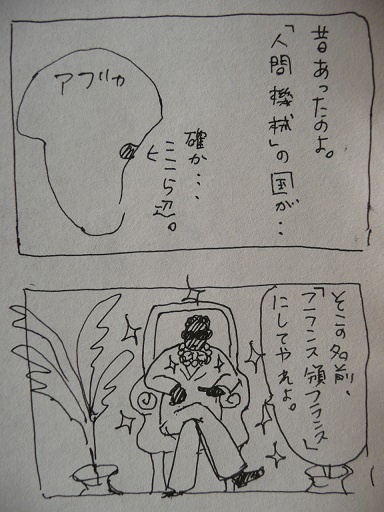 昔あったのよ。
「人間機械」の国が…
アフリカ
確か…
ここら辺。
そこの名前、
「フランス領フランス」
にしてやれよ。